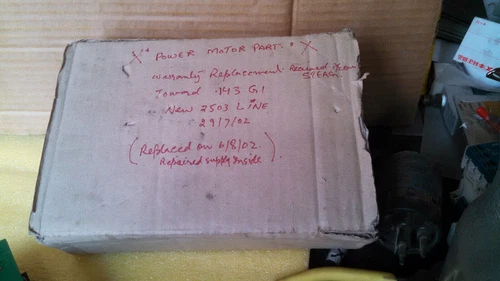 X "POWER MOTOR PART." X
Warranty Replacement. Received from
Toward .143 G1
New 2503 LINE
29/7/02
(Replaced on 6/8/02.
Repaired supply inside).